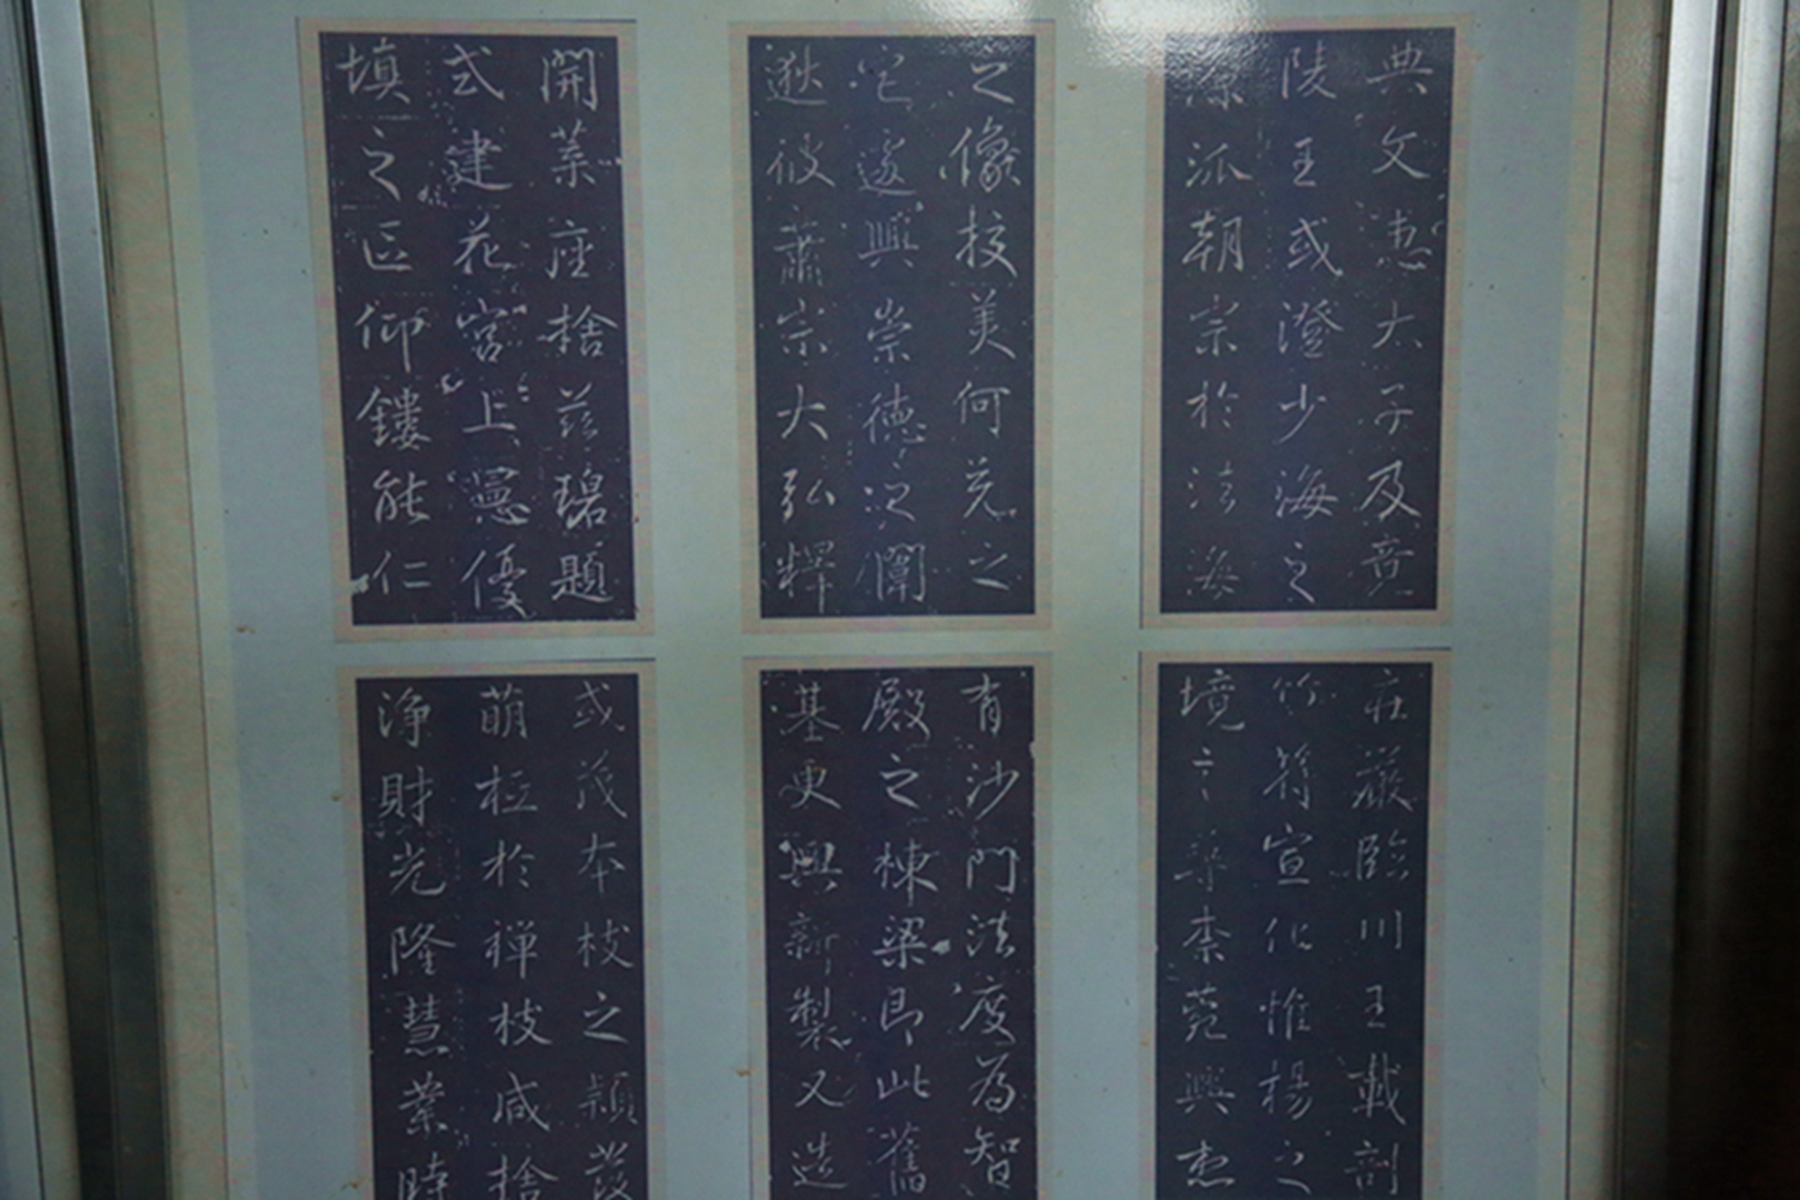 典文惠太子及竟
陵王或澄少海之
源派朝宗於法海
之像校美何充之
宅遂興崇德之闈
逖彼蕭宗大弘釋
開葉座捨茲碧題
式建花宮上憲優
填之區仰鏤能仁
莊嚴臨川王載剖
竹符宣化惟楊之
境言尋柰苑興
有沙門法度為智
殿之棟梁即此舊
基更興新製又造
或茂本枝之穎發
萌柢於禅枝咸捨
淨財光隆慧業時